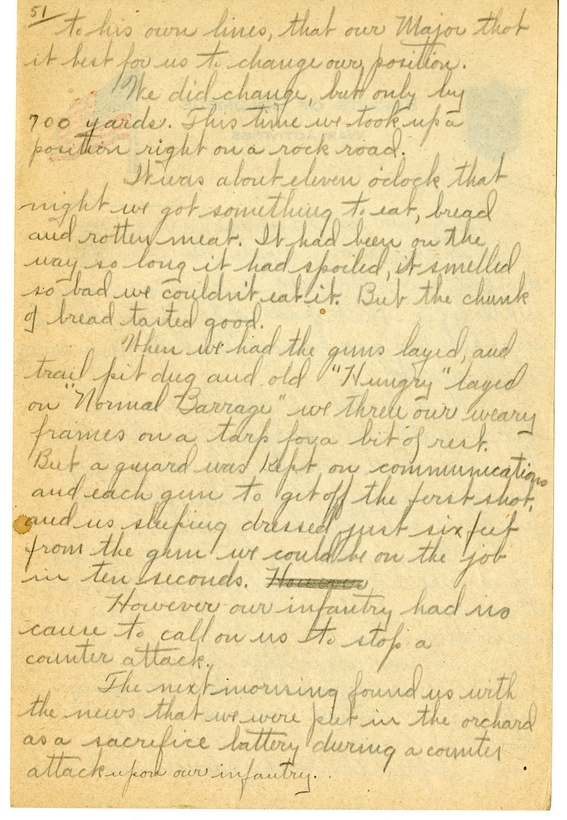 51
to his own lines, that our Major thot
it best for us to change our position.
We did change, but only by
700 yards. This time we took up a
position right on a rock road.
It was about eleven o'clock that
night we got something to eat, bread
and rotten meat. It had been on the
way so long it had spoiled, it smelled
so bad we couldn't eat it. But the chunk
of bread tasted good.
When we had the guns layed, and
trail pit dug and old "Hungry" layed
on "Normal Barrage" we threw our weary
frames on a tarp for a bit of rest.
But a guard was kept on communications
and each gun to get off the first shot,
and us sleeping dressed just six feet
from the gun we could be on the job
in ten seconds. However
However our infantry had no
cause to call on us to stop a
counter attack.
The next morning found us with
the news that we were put in the orchard
as a sacrifice battery during a counter
attack upon our infantry.